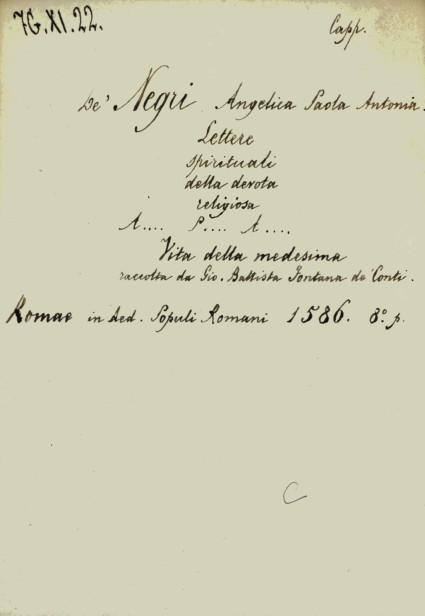 7G.XI.22.
Capp.
De' Negri Angelica Paola Antonia.
Lettere
spirituali
della devota
religiosa
A.... P.... A....
Vita della medesima
raccolta da Gio. Battista Fontana de' Conti.
Romae in Aed. Populi Romani 1586. 8º. p.
C